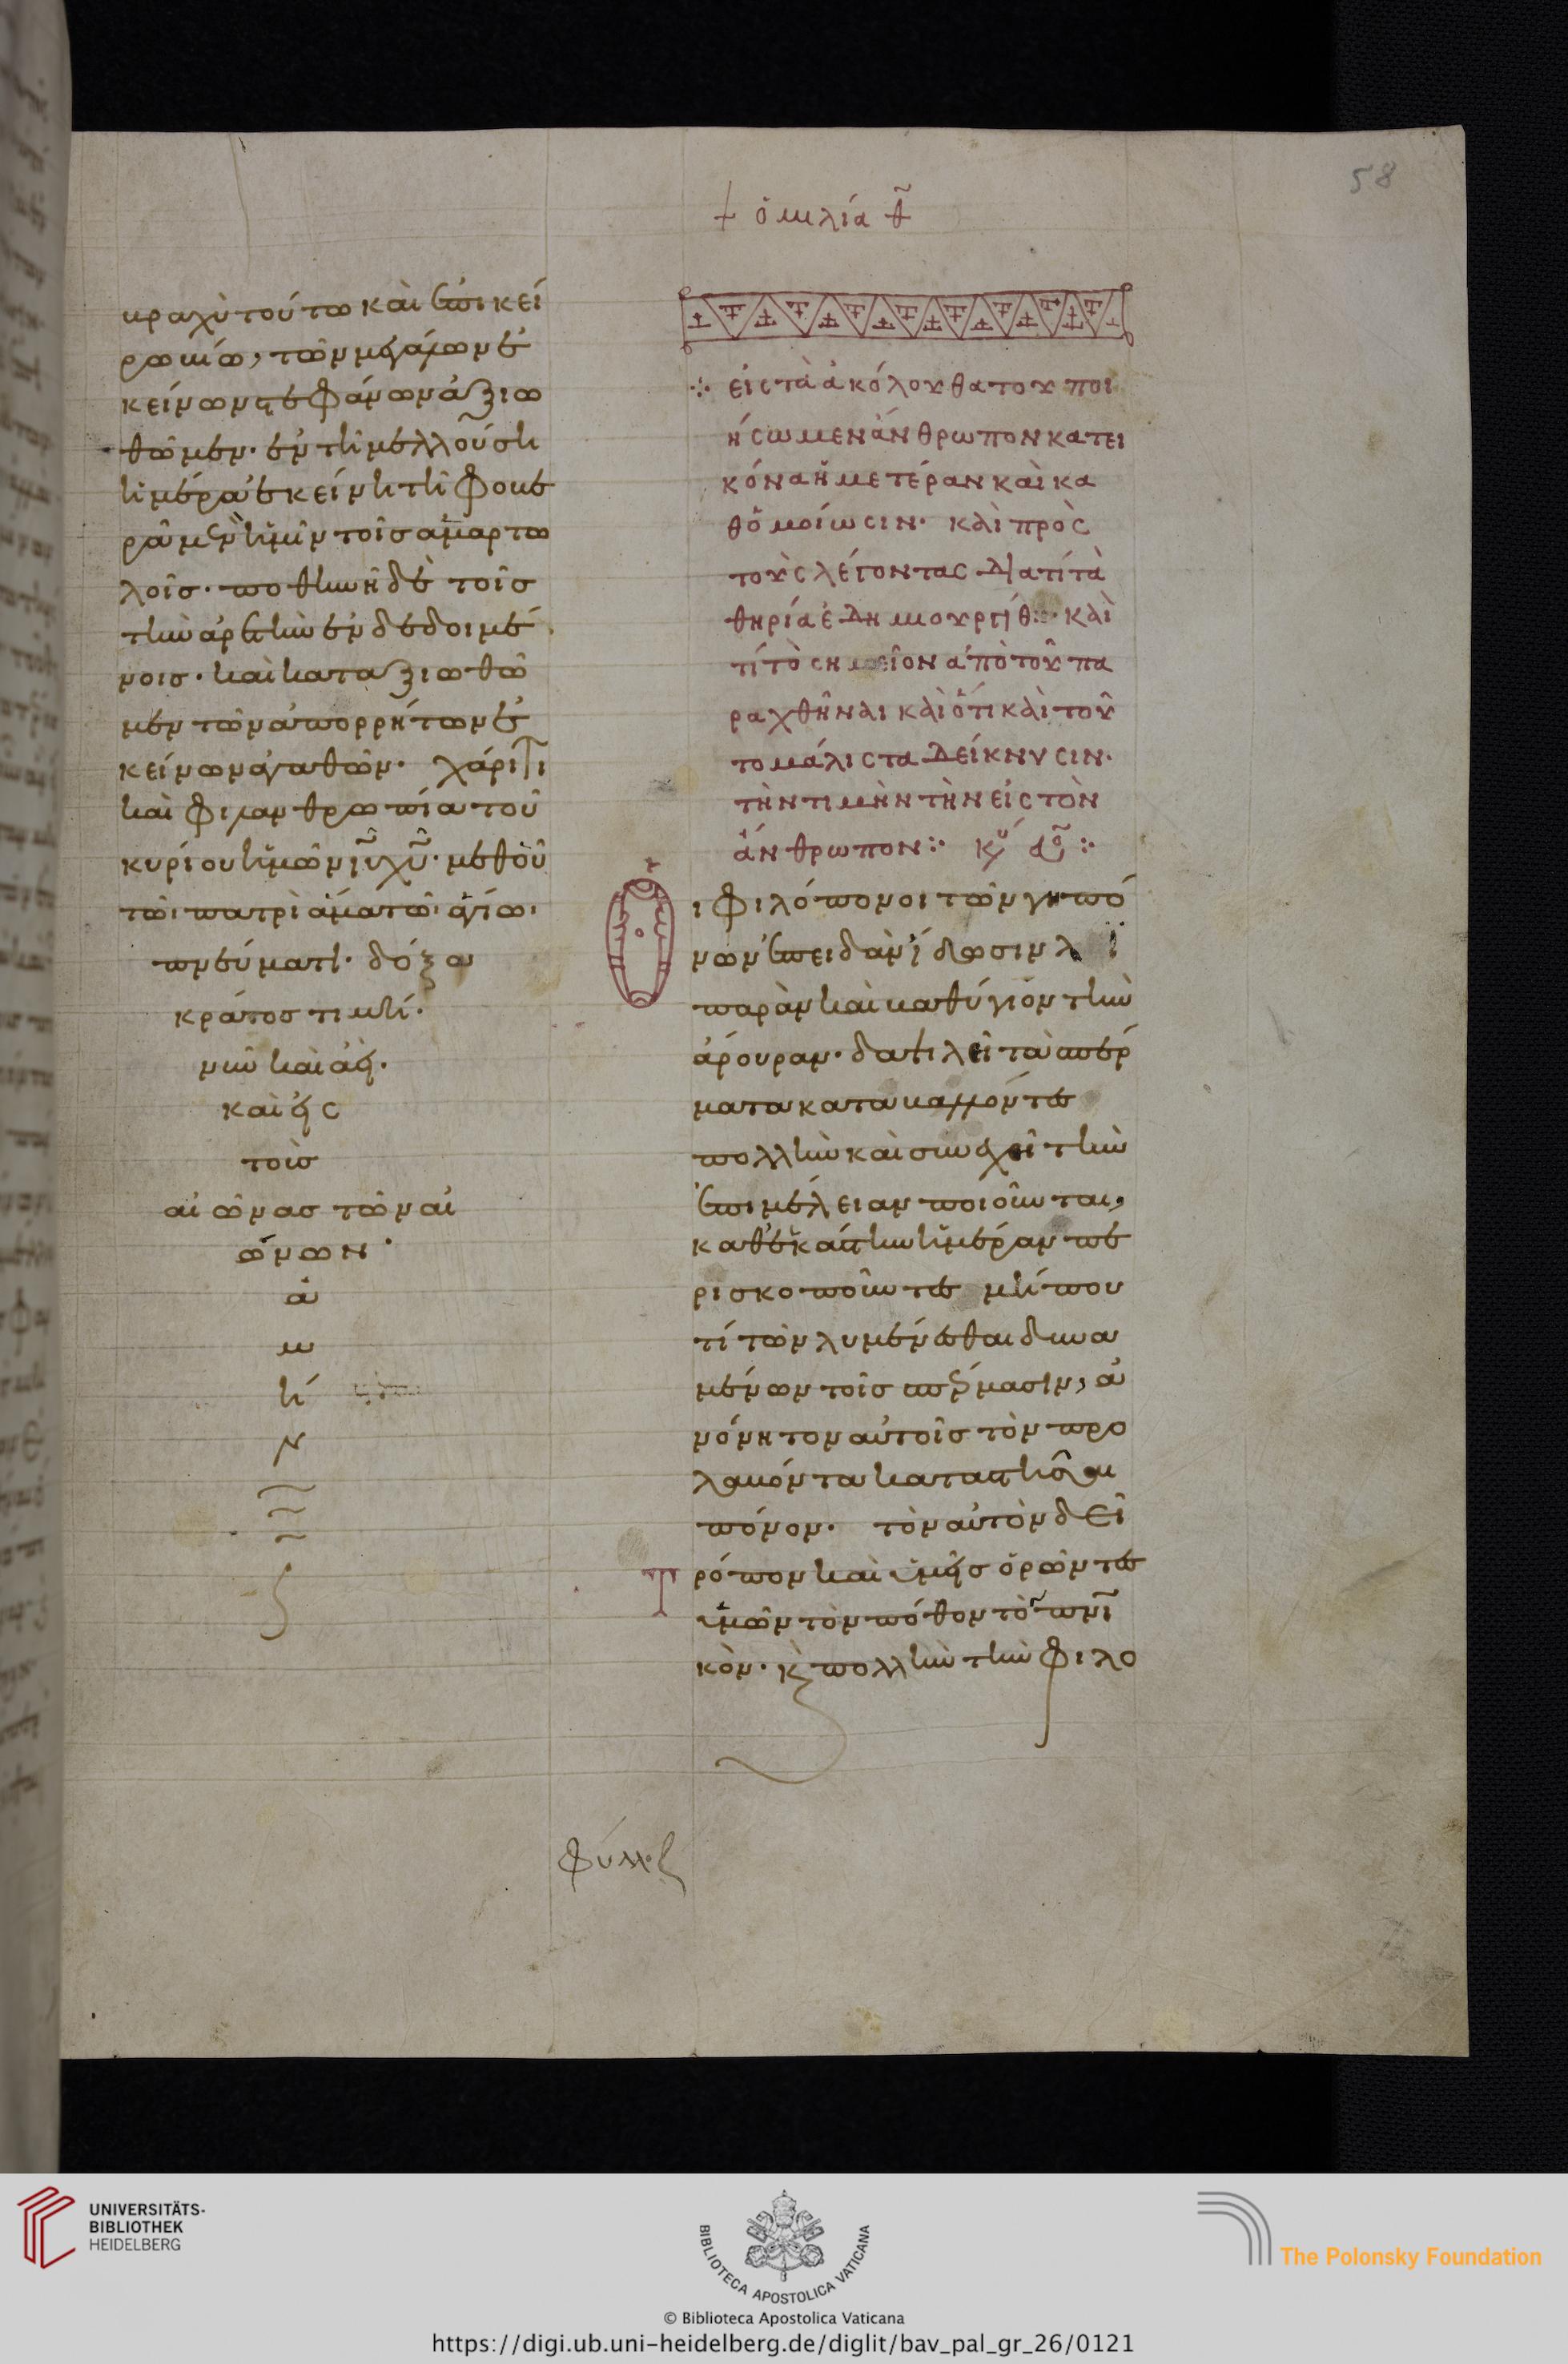 58
+ ὁμιλία θ
κραχὺ τούτω καὶ ἐπικεί
ρωμέν
κείνων στεφάνων ἀξιω
θῶμεν· ἐν τῆ μελλούση
ἡμέρα ἐκείνη τῆ φοβε
ρᾶ μὲν ἡμῖν τοῖς ἁμαρτω
λοῖς· ποθεινῆ δὲ τοῖς
τὴν ἀρετὴν ἐνδεδυμέ
νοις· καὶ καταξιωθῶ
μεν τῶν ἀπορρήτων ἐ
κείνων ἀγαθῶν· χάριτι
καὶ φιλανθρωπία τοῦ
κυρίου ἡμῶν ιυ χυ· μεθ οὗ
τῶι πατρὶ ἅμα τῶι ἁγίωι
πνεύματι· δόξα
κράτος τιμή·
νῦν καὶ ἀεί·
καὶ εἰς
τοὺς
αἰῶνας τῶν αἰ
ώνων·
ἀ
μ
ή
ν
εἰς τὰ ἀκόλουθα τοῦ ποι
ήσωμεν ἄνθρωπον κατ ει
κόνα ἡμετέραν καὶ κα
θ ὁμοίωσιν· καὶ πρὸς
τοὺς λέγοντας διατί τὰ
θηρία ἐδημιουργήθ· καὶ
τί τὸ σημεῖον ἀπὸ τοῦ πα
ραχθῆναι καὶ ὅτι καὶ τοῦ
το μάλιστα δείκνυσιν·
τὴν τιμὴν τὴν εἰς τὸν
ἄνθρωπον
ι φιλόπονοι τῶν γηπό
νων ἐπειδὰν ἴδωσιν λι
παρὰν καὶ καθύγιον τὴν
ἄρουραν· δαψιλεῖ τὰ σπέρ
ματα καταβάλλοντες
πολλὴν καὶ συνεχεῖ τὴν
ἐπιμέλειαν ποιοῦνται,
καθ ἑκάστην ἡμέραν πε
ρισκοποῦντες μήπου
τί τῶν λυμένεσθαι δυνα
μένων τοῖς σπέρμασιν, ἀ
νόνητον αὐτοῖς τὸν προ
λαβόντα καταστήση
πόνον· τὸν αὐτὸν δεῖ
Τ ρόπον καὶ ἡμεῖς ὁρῶντες
ὑμῶν τὸν πόθον τὸν πνι
κὸν· κ πολλὴν τὴν φιλο
UNIVERSITÄTS-
BIBLIOTHEK
HEIDELBERG
BIBLIOTECA APOSTOLICA VATICANA
The Polonsky Foundation
© Biblioteca Apostolica Vaticana
https://digi.ub.uni-heidelberg.de/diglit/bav_pal_gr_26/0121